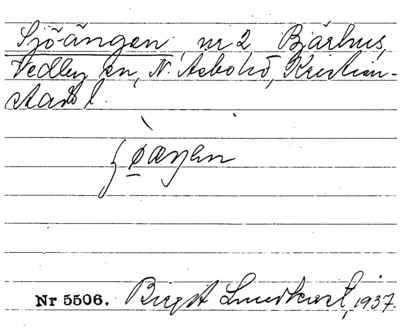 Sjö-ängen nr 2 Bjärhus,
Vedby sn, N. Åsbo hd, Kristian-
stads l.
Nr 5506. Birgit Lundkvist, 1937.